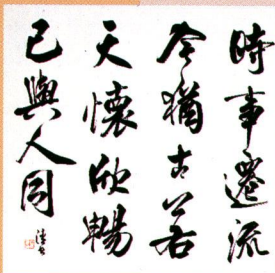 時事遷流
今猶古若
天懷欣暢
己與人同